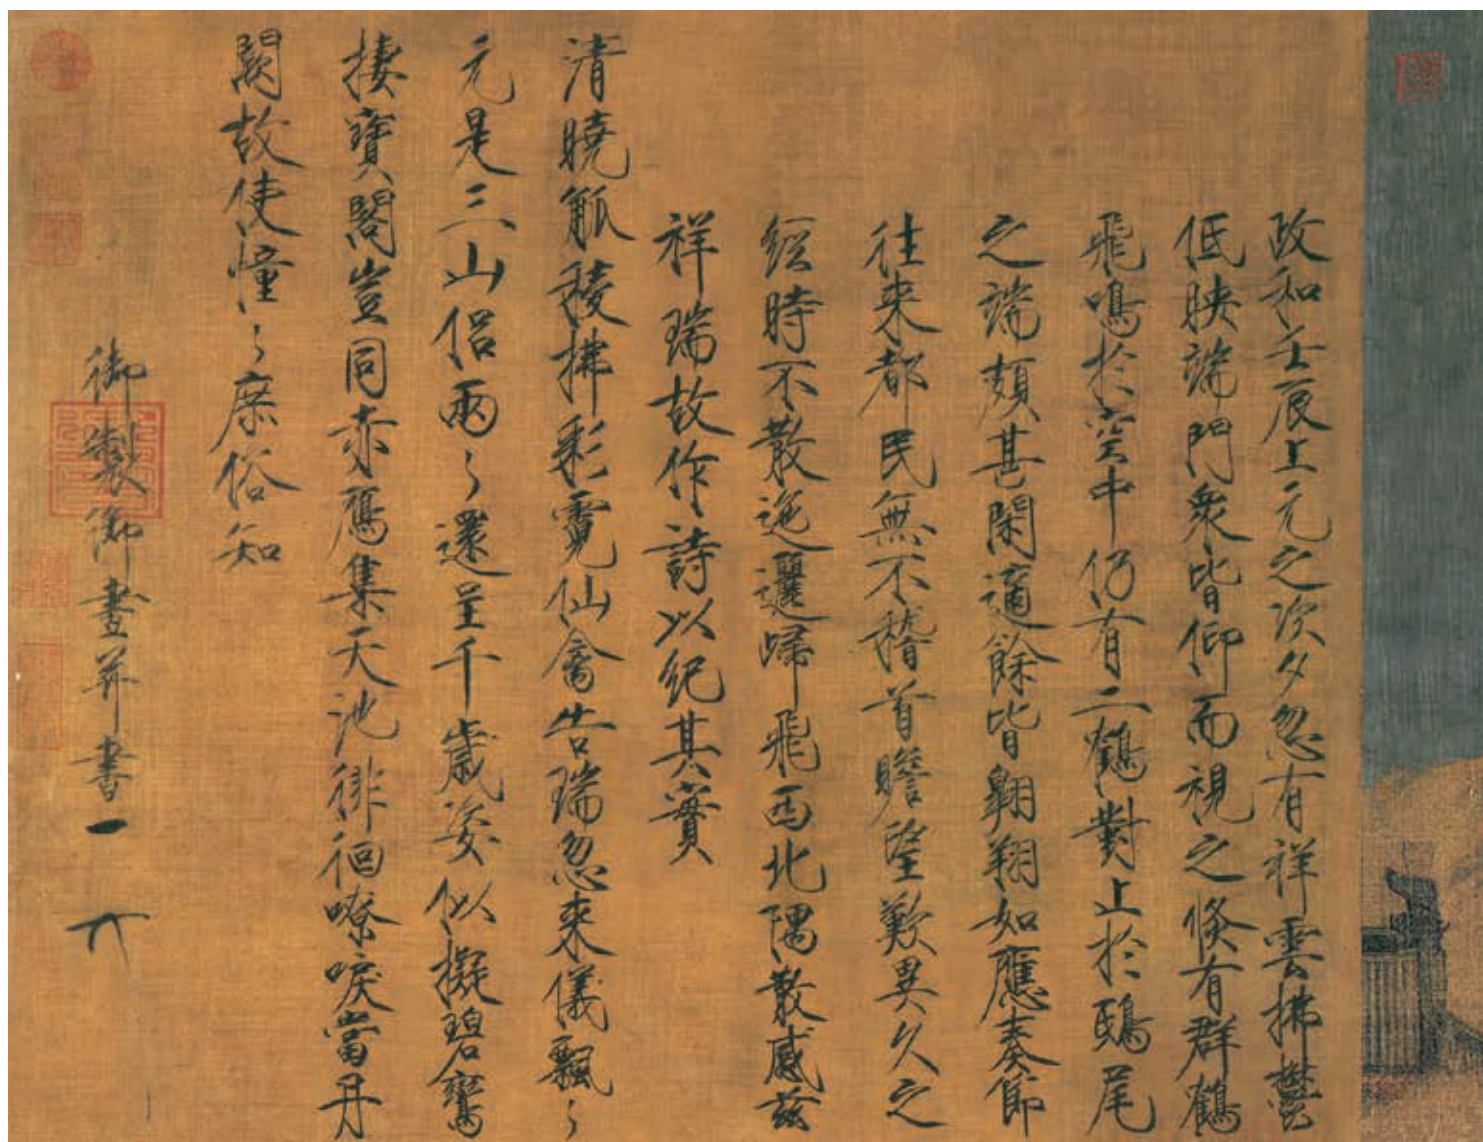 政和壬辰上元之次夕忽有祥雲拂鬱
低映端門衆皆仰而視之倐有群鶴
飛鳴於空中仍有二鶴對止於鴟尾
之端頗甚閑適餘皆翱翔如應奏節
往来都民無不稽首瞻望歎異久之
經時不散迤邐歸飛西北隅散感茲
祥瑞故作詩以紀其實
清曉觚稜拂彩霓仙禽告瑞忽来儀飄〻
元是三山侣兩〻還呈千歲姿似擬碧鸞
棲寶閣豈同赤鴈集天池徘徊嘹唳當丹
闕故使憧〻庶俗知
御製御畫并書